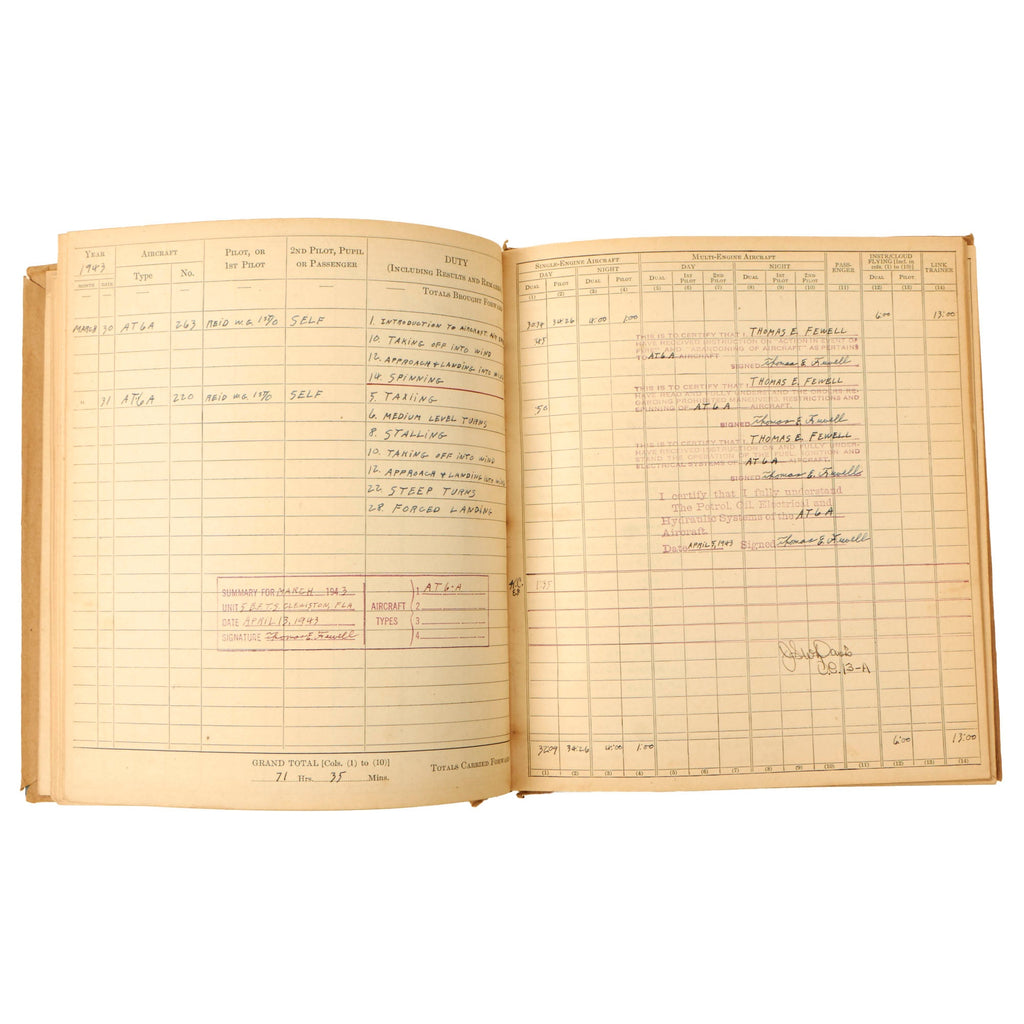 YEAR AIRCRAFT PILOT, OR 2ND PILOT, PUPIL DUTY
1943 Type No. 1ST PILOT OR PASSENGER (INCLUDING RESULTS AND REMARKS
MONTH DATE
— — — — — — TOTALS BROUGHT FORWARD
MARCH 30 AT6A 263 REID W.G. SELF 1. INTRODUCTION TO AIRCRAFT.
10. TAKING OFF INTO WIND
12. APPROACH & LANDING INTO WIND
14. SPINNING
" 31 AT6A 220 REID W.G. SELF 5. TAXIING
6. MEDIUM LEVEL TURNS
8. STALLING
10. TAKING OFF INTO WIND
12. APPROACH & LANDING INTO WIND
22. STEEP TURNS
28. FORCED LANDING
SUMMARY FOR MARCH 1943 1 AT6-A
UNIT 5 B.F.T.S. CLEWISTON, FLA AIRCRAFT 2
DATE APRIL 13, 1943 TYPES 3
SIGNATURE Thomas E. Fewell 4
GRAND TOTAL [Cols. (1) to (10)]
71 Hrs. 35 Mins.
TOTALS CARRIED FORWARD
SINGLE-ENGINE AIRCRAFT MULTI-ENGINE AIRCRAFT PASS-ENGER INSTR/CLOUD FLYING [Incl. in cols. (1) to (10)] LINK TRAINER
DAY NIGHT DAY NIGHT
DUAL PILOT DUAL PILOT DUAL 1ST PILOT 2ND PILOT DUAL 1ST PILOT 2ND PILOT DUAL PILOT
(1) (2) (3) (4) (5) (6) (7) (8) (9) (10) (11) (12) (13) (14)
30:34 34:26 4:00 1:00 6:00 13:00
:45
THIS IS TO CERTIFY THAT I, THOMAS E. FEWELL
HAVE RECEIVED INSTRUCTION ON "ACTION IN EVENT OF
FIRE" AND "ABANDONING OF AIRCRAFT" AS PERTAINS
TO AT6A AIRCRAFT
SIGNED Thomas E. Fewell
THIS IS TO CERTIFY THAT I, THOMAS E. FEWELL
HAVE READ AND FULLY UNDERSTAND THE ORDERS RE-
GARDING PROHIBITED MANEUVERS, RESTRICTIONS AND
:50
SPINNING OF AT6A AIRCRAFT.
SIGNED Thomas E. Fewell
THIS IS TO CERTIFY THAT I, THOMAS E. FEWELL
HAVE RECEIVED INSTRUCTION ON AND FULLY UNDER-
STAND THE OPERATION OF THE FUEL, IGNITION AND
ELECTRICAL SYSTEMS OF AT6A AIRCRAFT.
SIGNED Thomas E. Fewell
I certify that I fully understand
The Petrol, Oil, Electrical and
Hydraulic Systems of the AT6A
Aircraft.
Date APRIL 5, 1943 Signed Thomas E. Fewell
1:35
C.C. 13-A
32:09 34:26 4:00 1:00 6:00 13:00
(1) (2) (3) (4) (5) (6) (7) (8) (9) (10) (11) (12) (13) (14)